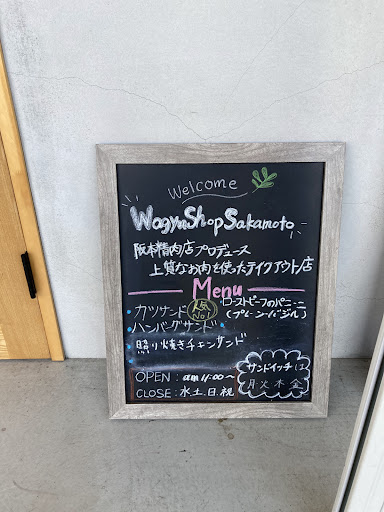 Welcome
WagyuShopSakamoto
阪本精肉店プロデュース
上質なお肉を使ったテイクアウト店
Menu
・カツサンド 人気No.1
・ローストビーフのパニーニ
(プレーン・バジル)
・ハンバーグサンド
・照り焼きチキンサンド
サンドイッチは
月火木金
OPEN : am 11:00~
CLOSE : 水.土.日.祝